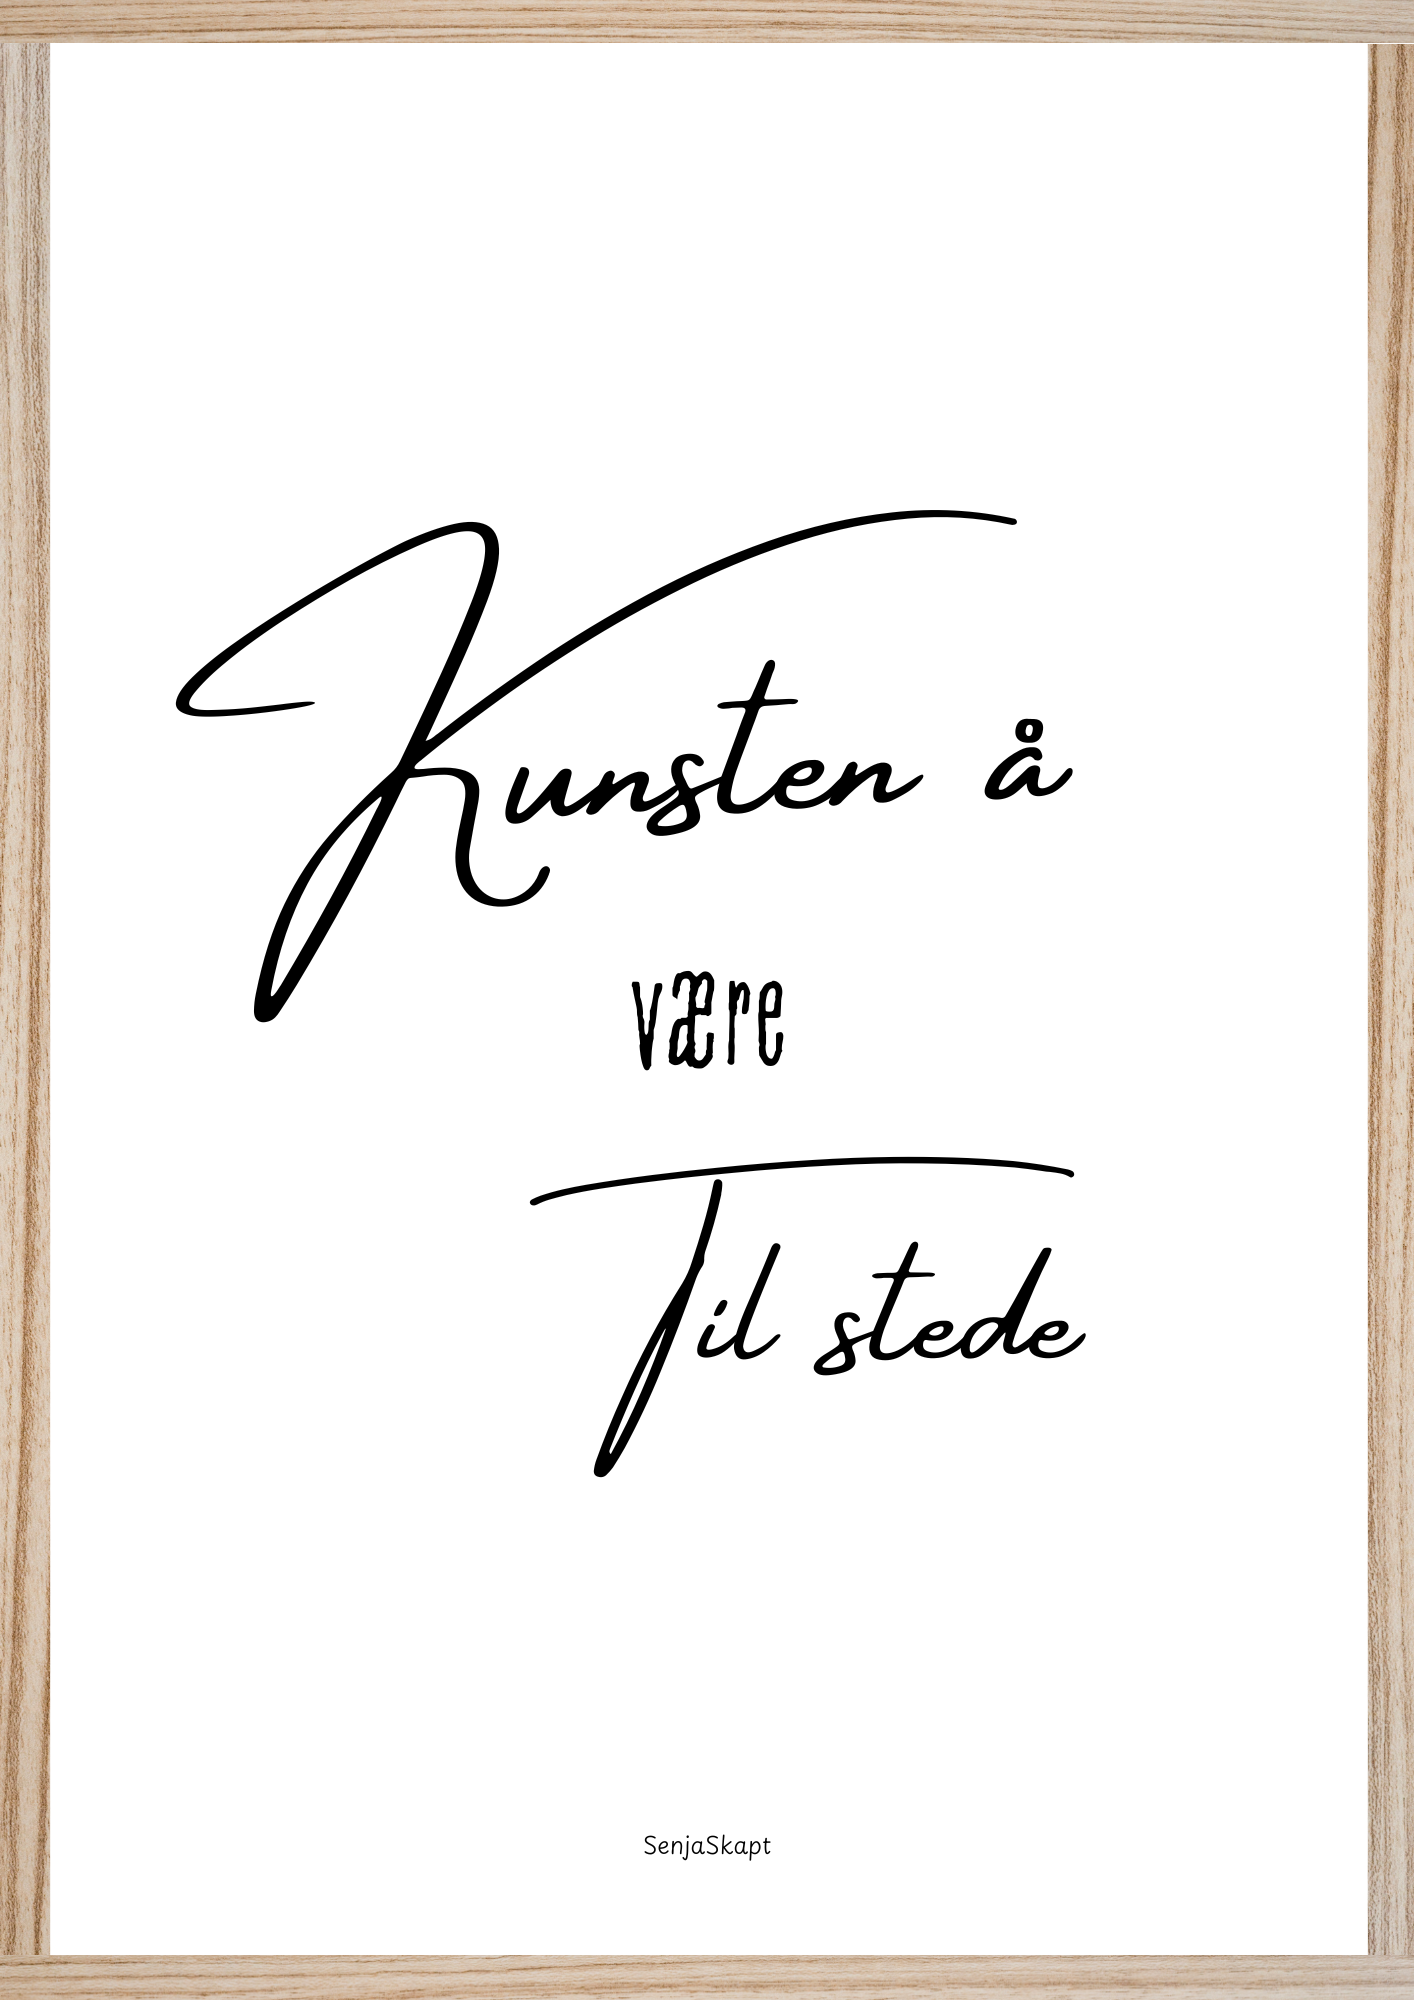 Kunsten å
være
Til stede
SenjaSkapt